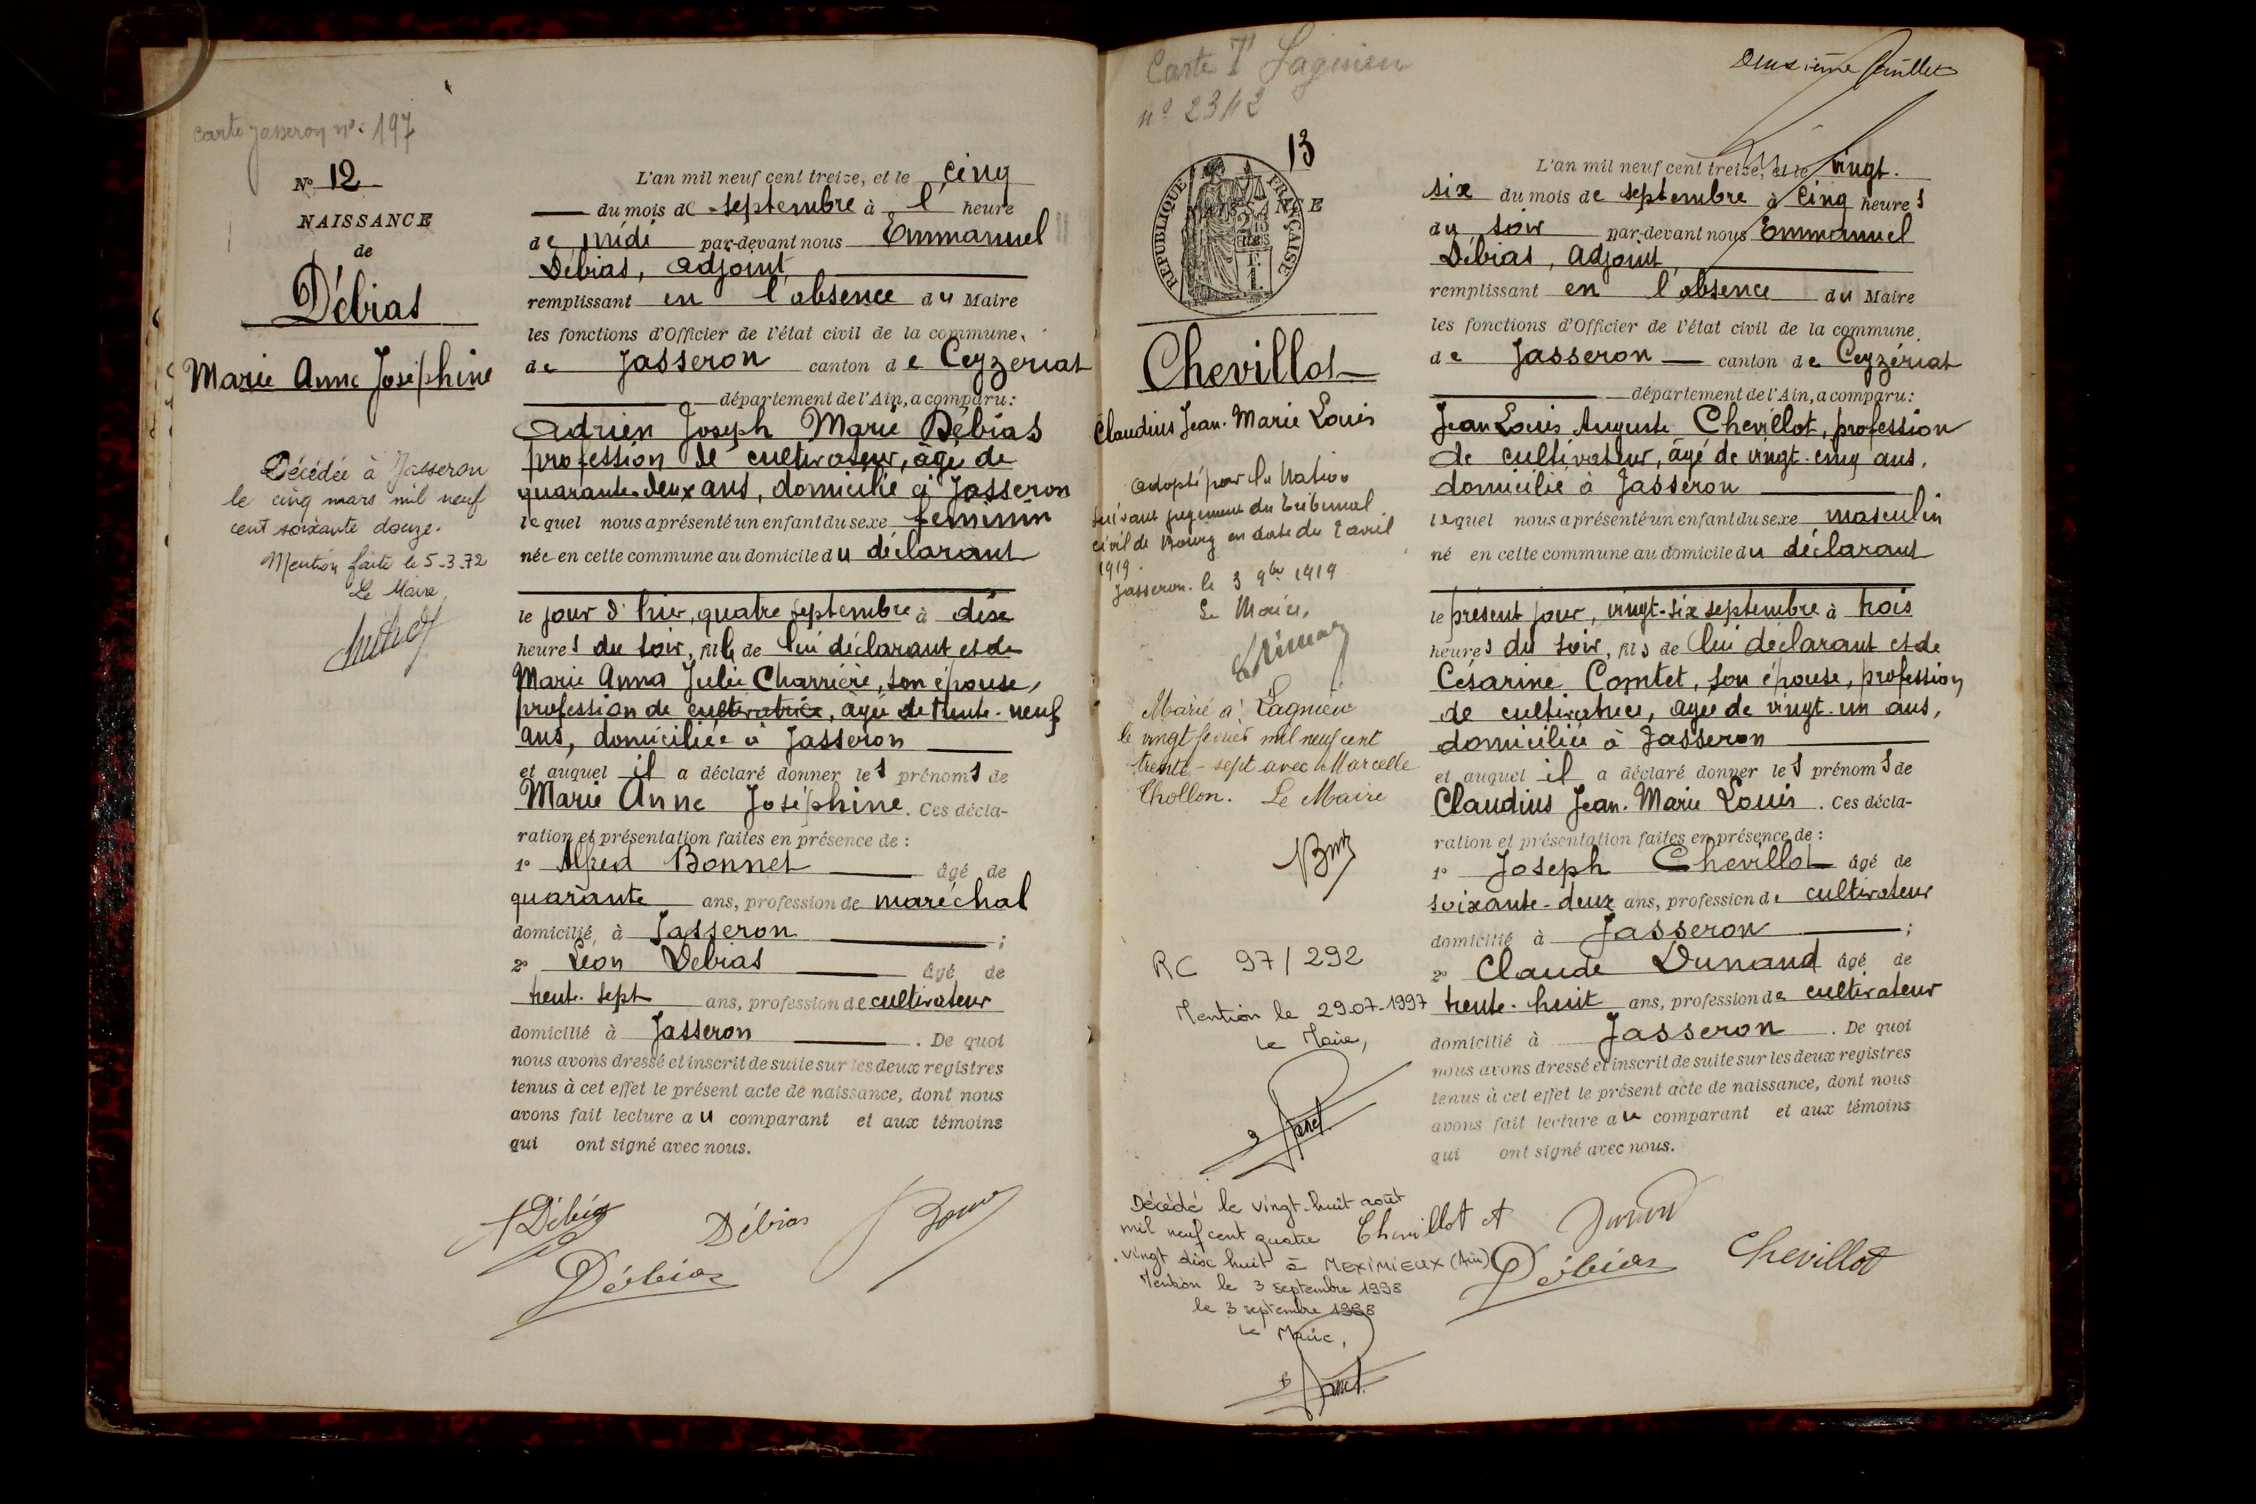 Carte Jasseron n°: 197
N° 12
NAISSANCE
de
Débias
Marie Anne Joséphine
Décédée à Jasseron
le cinq mars mil neuf
cent soixante douze.
Mention faite le 5-3-72
Le Maire,
L'an mil neuf cent treize, et le cinq
du mois de septembre à l' heure
de midi par-devant nous Emmanuel
Débias, adjoint
remplissant en l'absence du Maire
les fonctions d'Officier de l'état civil de la commune
de Jasseron canton de Ceyzériat
département de l'Ain, a comparu:
Adrien Joseph Marie Débias
profession de cultivateur, âgé de
quarante-deux ans, domicilié à Jasseron
lequel nous a présenté un enfant du sexe féminin
née en cette commune au domicile du déclarant
le jour d'hier, quatre septembre à dix
heures du soir, fille de lui déclarant et de
Marie Anna Julie Charrière, son épouse,
profession de cultivatrice, âgée de trente-neuf
ans, domiciliée à Jasseron
et auquel il a déclaré donner les prénoms de
Marie Anne Joséphine. Ces décla-
ration et présentation faites en présence de :
1° Alfred Bonnet âgé de
quarante ans, profession de maréchal
domicilié à Jasseron ;
2° Léon Débias âgé de
trente-sept ans, profession de cultivateur
domicilié à Jasseron . De quoi
nous avons dressé et inscrit de suite sur les deux registres
tenus à cet effet le présent acte de naissance, dont nous
avons fait lecture au comparant et aux témoins
qui ont signé avec nous.
A Débias
Débias
Débias
Carte T Lagnieu
n° 2342
Deuxième feuillet
13
RÉPUBLIQUE FRANÇAISE
NAISSANCE
Chevillot
Claudius Jean-Marie Louis
Adopté par la Nation
suivant jugement du Tribunal
civil de Bourg en date du 2 avril
1919.
Jasseron. le 3 9bre 1919
Le Maire,
Marié à Lagnieu
le vingt février mil neuf cent
trente-sept avec Marcelle
Chollon. Le Maire
RC 97/292
Mention le 29.07-1997
Le Maire,
Décédé le vingt-huit août
mil neuf cent quatre
vingt dix huit à MEXIMIEUX (Ain)
Mention le 3 septembre 1998
le 3 septembre 1998
Le Maire,
L'an mil neuf cent treize, et le vingt-
six du mois de septembre à cinq heures
du soir par-devant nous Emmanuel
Débias, adjoint
remplissant en l'absence du Maire
les fonctions d'Officier de l'état civil de la commune
de Jasseron canton de Ceyzériat
département de l'Ain, a comparu:
Jean Louis Auguste Chevillot, profession
de cultivateur, âgé de vingt-cinq ans,
domicilié à Jasseron
lequel nous a présenté un enfant du sexe masculin
né en cette commune au domicile du déclarant
le présent jour, vingt-six septembre à trois
heures du soir, fils de lui déclarant et de
Césarine Comtet, son épouse, profession
de cultivatrice, âgée de vingt-un ans,
domiciliée à Jasseron
et auquel il a déclaré donner les prénoms de
Claudius Jean-Marie Louis. Ces décla-
ration et présentation faites en présence de :
1° Joseph Chevillot âgé de
soixante-deux ans, profession de cultivateur
domicilié à Jasseron ;
2° Claude Dunand âgé de
trente-huit ans, profession de cultivateur
domicilié à Jasseron . De quoi
nous avons dressé et inscrit de suite sur les deux registres
tenus à cet effet le présent acte de naissance, dont nous
avons fait lecture au comparant et aux témoins
qui ont signé avec nous.
Chevillot A
Débias
Chevillot